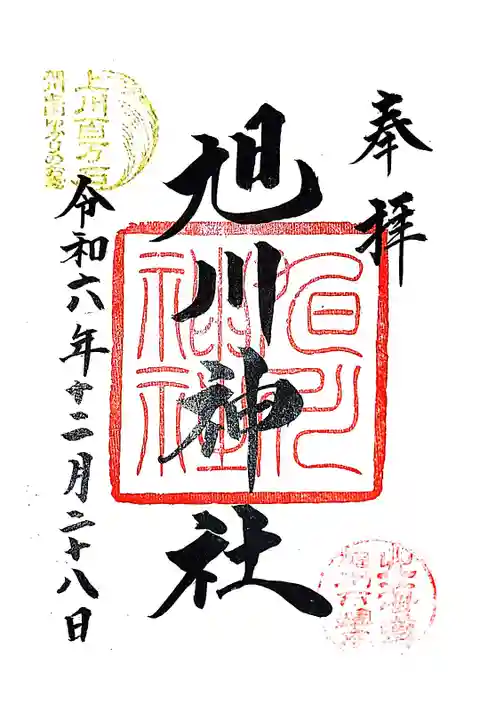 奉拝
旭川神社
令和六年十二月二十八日
上川百万石
旭川神社